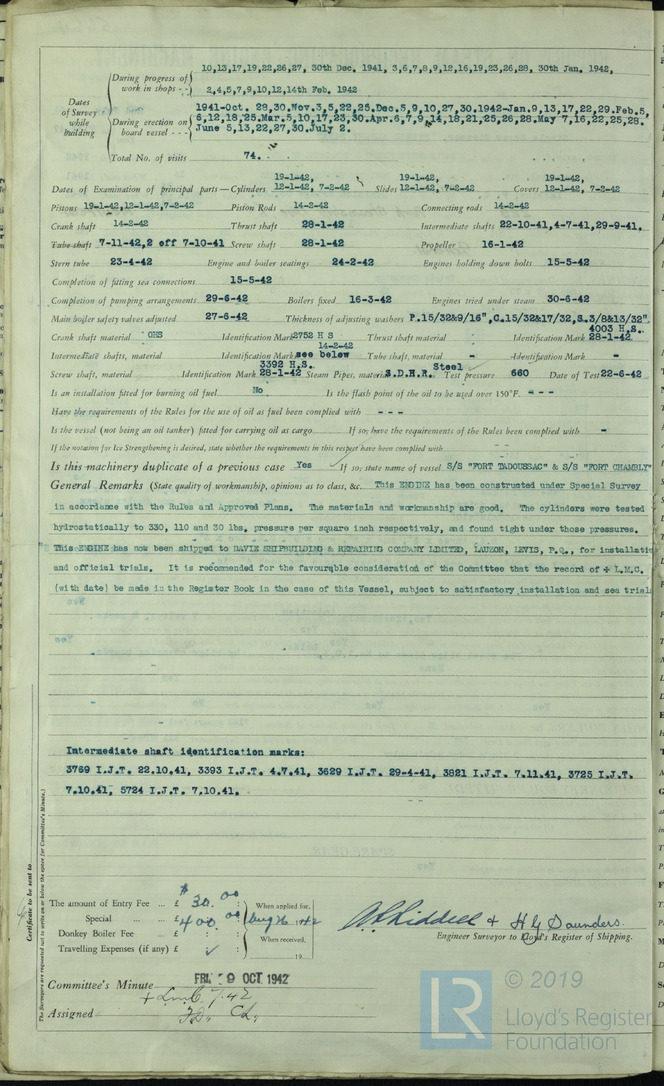 10,13,17,19,22,26,27, 30th Dec. 1941, 3,6,7,8,9,12,16,19,23,26,28, 30th Jan. 1942,
During progress of work in shops - -
2,4,5,7,9,10,12,14th Feb. 1942
Dates of Survey while building
1941-Oct. 28,30.Nov.3,5,22,25.Dec.5,9,10,27,30.1942-Jan.9,13,17,22,29.Feb.5,
During erection on board vessel - - -
6,12,18,25.Mar.5,10,17,23,30.Apr.6,7,9,14,18,21,25,26,28.May 7,16,22,25,28.
June 5,13,22,27,30.July 2.
Total No. of visits 74.
19-1-42, 19-1-42, 19-1-42,
Dates of Examination of principal parts—Cylinders 12-1-42, 7-2-42 Slides 12-1-42, 7-2-42 Covers 12-1-42, 7-2-42
Pistons 19-1-42,12-1-42,7-2-42 Piston Rods 14-2-42 Connecting rods 14-2-42
Crank shaft 14-2-42 Thrust shaft 28-1-42 Intermediate shafts 22-10-41,4-7-41,29-9-41,
Tube shaft 7-11-42,2 off 7-10-41 Screw shaft 28-1-42 Propeller 16-1-42
Stern tube 23-4-42 Engine and boiler seatings 24-2-42 Engines holding down bolts 15-5-42
Completion of fitting sea connections 15-5-42
Completion of pumping arrangements 29-6-42 Boilers fixed 16-3-42 Engines tried under steam 30-6-42
Main boiler safety valves adjusted 27-6-42 Thickness of adjusting washers P.15/32&9/16",C.15/32&17/32,S.3/8&13/32"
4003 H.S.
Crank shaft material OHS Identification Mark 2752 H S Thrust shaft material Identification Mark 28-1-42
14-2-42
Intermediate shafts, material Identification Marks see below Tube shaft, material - Identification Mark -
3392 H.S. Steel
Screw shaft, material Identification Mark 28-1-42 Steam Pipes, material S.D.H.R. Test pressure 660 Date of Test 22-6-42
Is an installation fitted for burning oil fuel No Is the flash point of the oil to be used over 150°F. - - -
Have the requirements of the Rules for the use of oil as fuel been complied with - - -
Is the vessel (not being an oil tanker) fitted for carrying oil as cargo If so, have the requirements of the Rules been complied with -
If the notation for Ice Strengthening is desired, state whether the requirements in this respect have been complied with - -
Is this machinery duplicate of a previous case Yes If so, state name of vessel S/S "FORT TADOUSSAC" & S/S "FORT CHAMBLY"
General Remarks (State quality of workmanship, opinions as to class, &c. This ENGINE has been constructed under Special Survey
in accordance with the Rules and Approved Plans. The materials and workmanship are good. The cylinders were tested
hydrostatically to 330, 110 and 30 lbs. pressure per square inch respectively, and found tight under those pressures.
This ENGINE has now been shipped to DAVIE SHIPBUILDING & REPAIRING COMPANY LIMITED, LAUZON, LEVIS, P.Q., for installatio
and official trials. It is recommended for the favourable consideration of the Committee that the record of + L.M.C.
(with date) be made in the Register Book in the case of this Vessel, subject to satisfactory installation and sea trial
Intermediate shaft identification marks:
3769 I.J.T. 22.10.41, 3393 I.J.T. 4.7.41, 3629 I.J.T. 29-4-41, 3821 I.J.T. 7.11.41, 3725 I.J.T.
7.10.41, 5724 I.J.T. 7.10.41.
Certificate to be sent to
The Surveyors are requested not to write on or below the space for Committee's Minute.)
The amount of Entry Fee ... $ 30.00 When applied for,
Special ... £ 400.00 Aug 26 1942
Donkey Boiler Fee £ : : When received,
Travelling Expenses (if any) £ : ✓ : 19
A Riddell + H G Saunders.
Engineer Surveyor to Lloyd's Register of Shipping.
Committee's Minute FRI. 9 OCT 1942
Assigned + Lmc 7.42
© 2019
LR
Lloyd's Register
Foundation